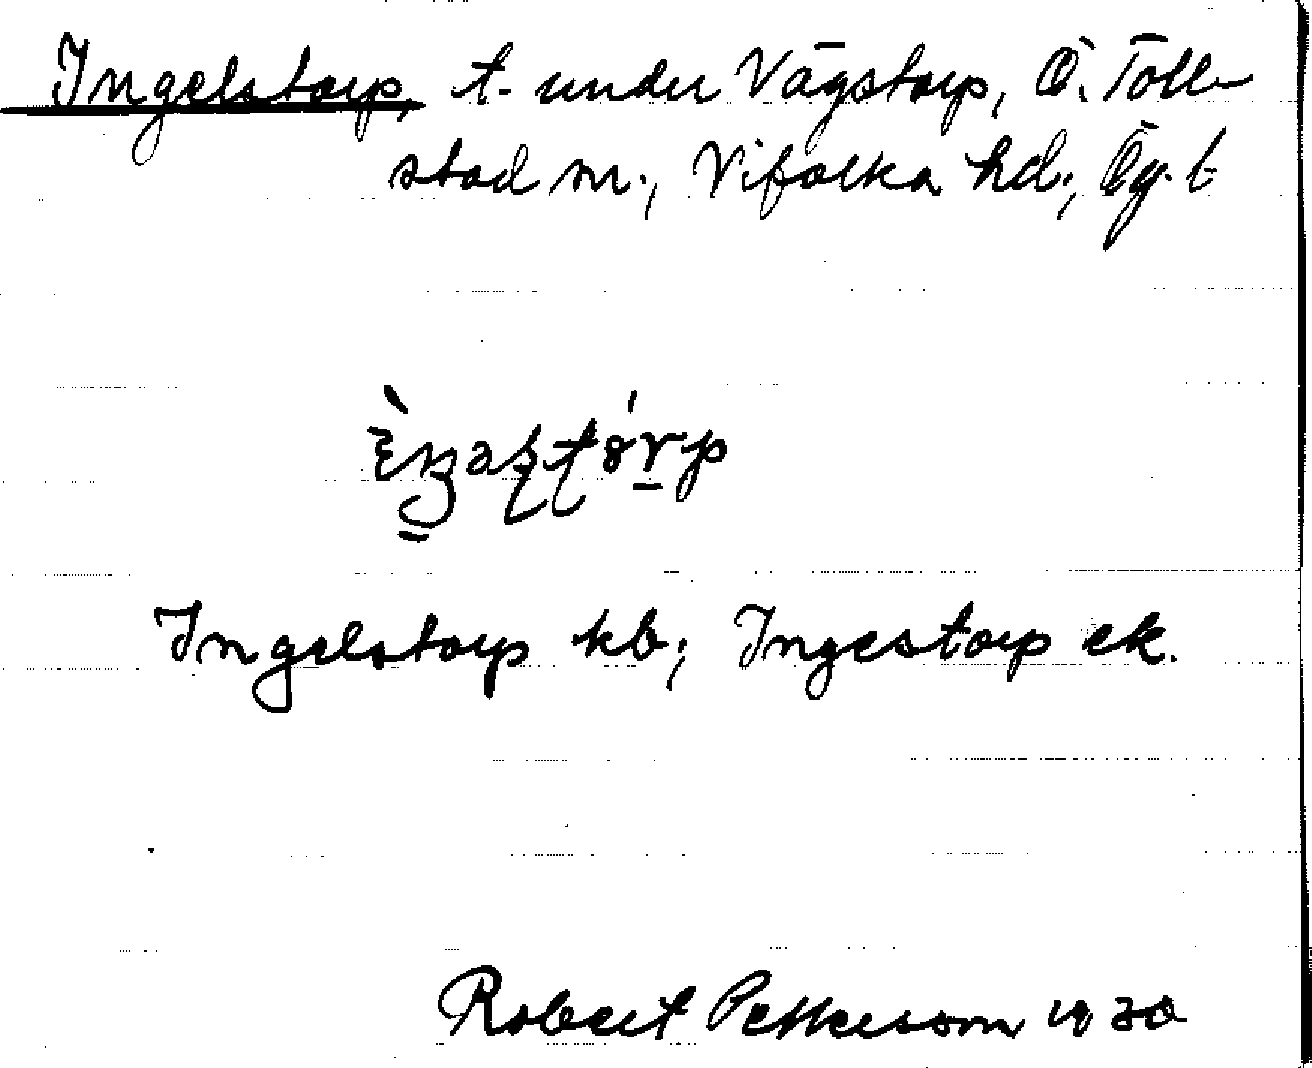 Ingelstorp, t. under Vägstorp, Ö. Toll-
stad sn., Vifolka hd., Ög. l.
Ingelstorp kb; Ingestorp ek.
Robert Pettersson 1930